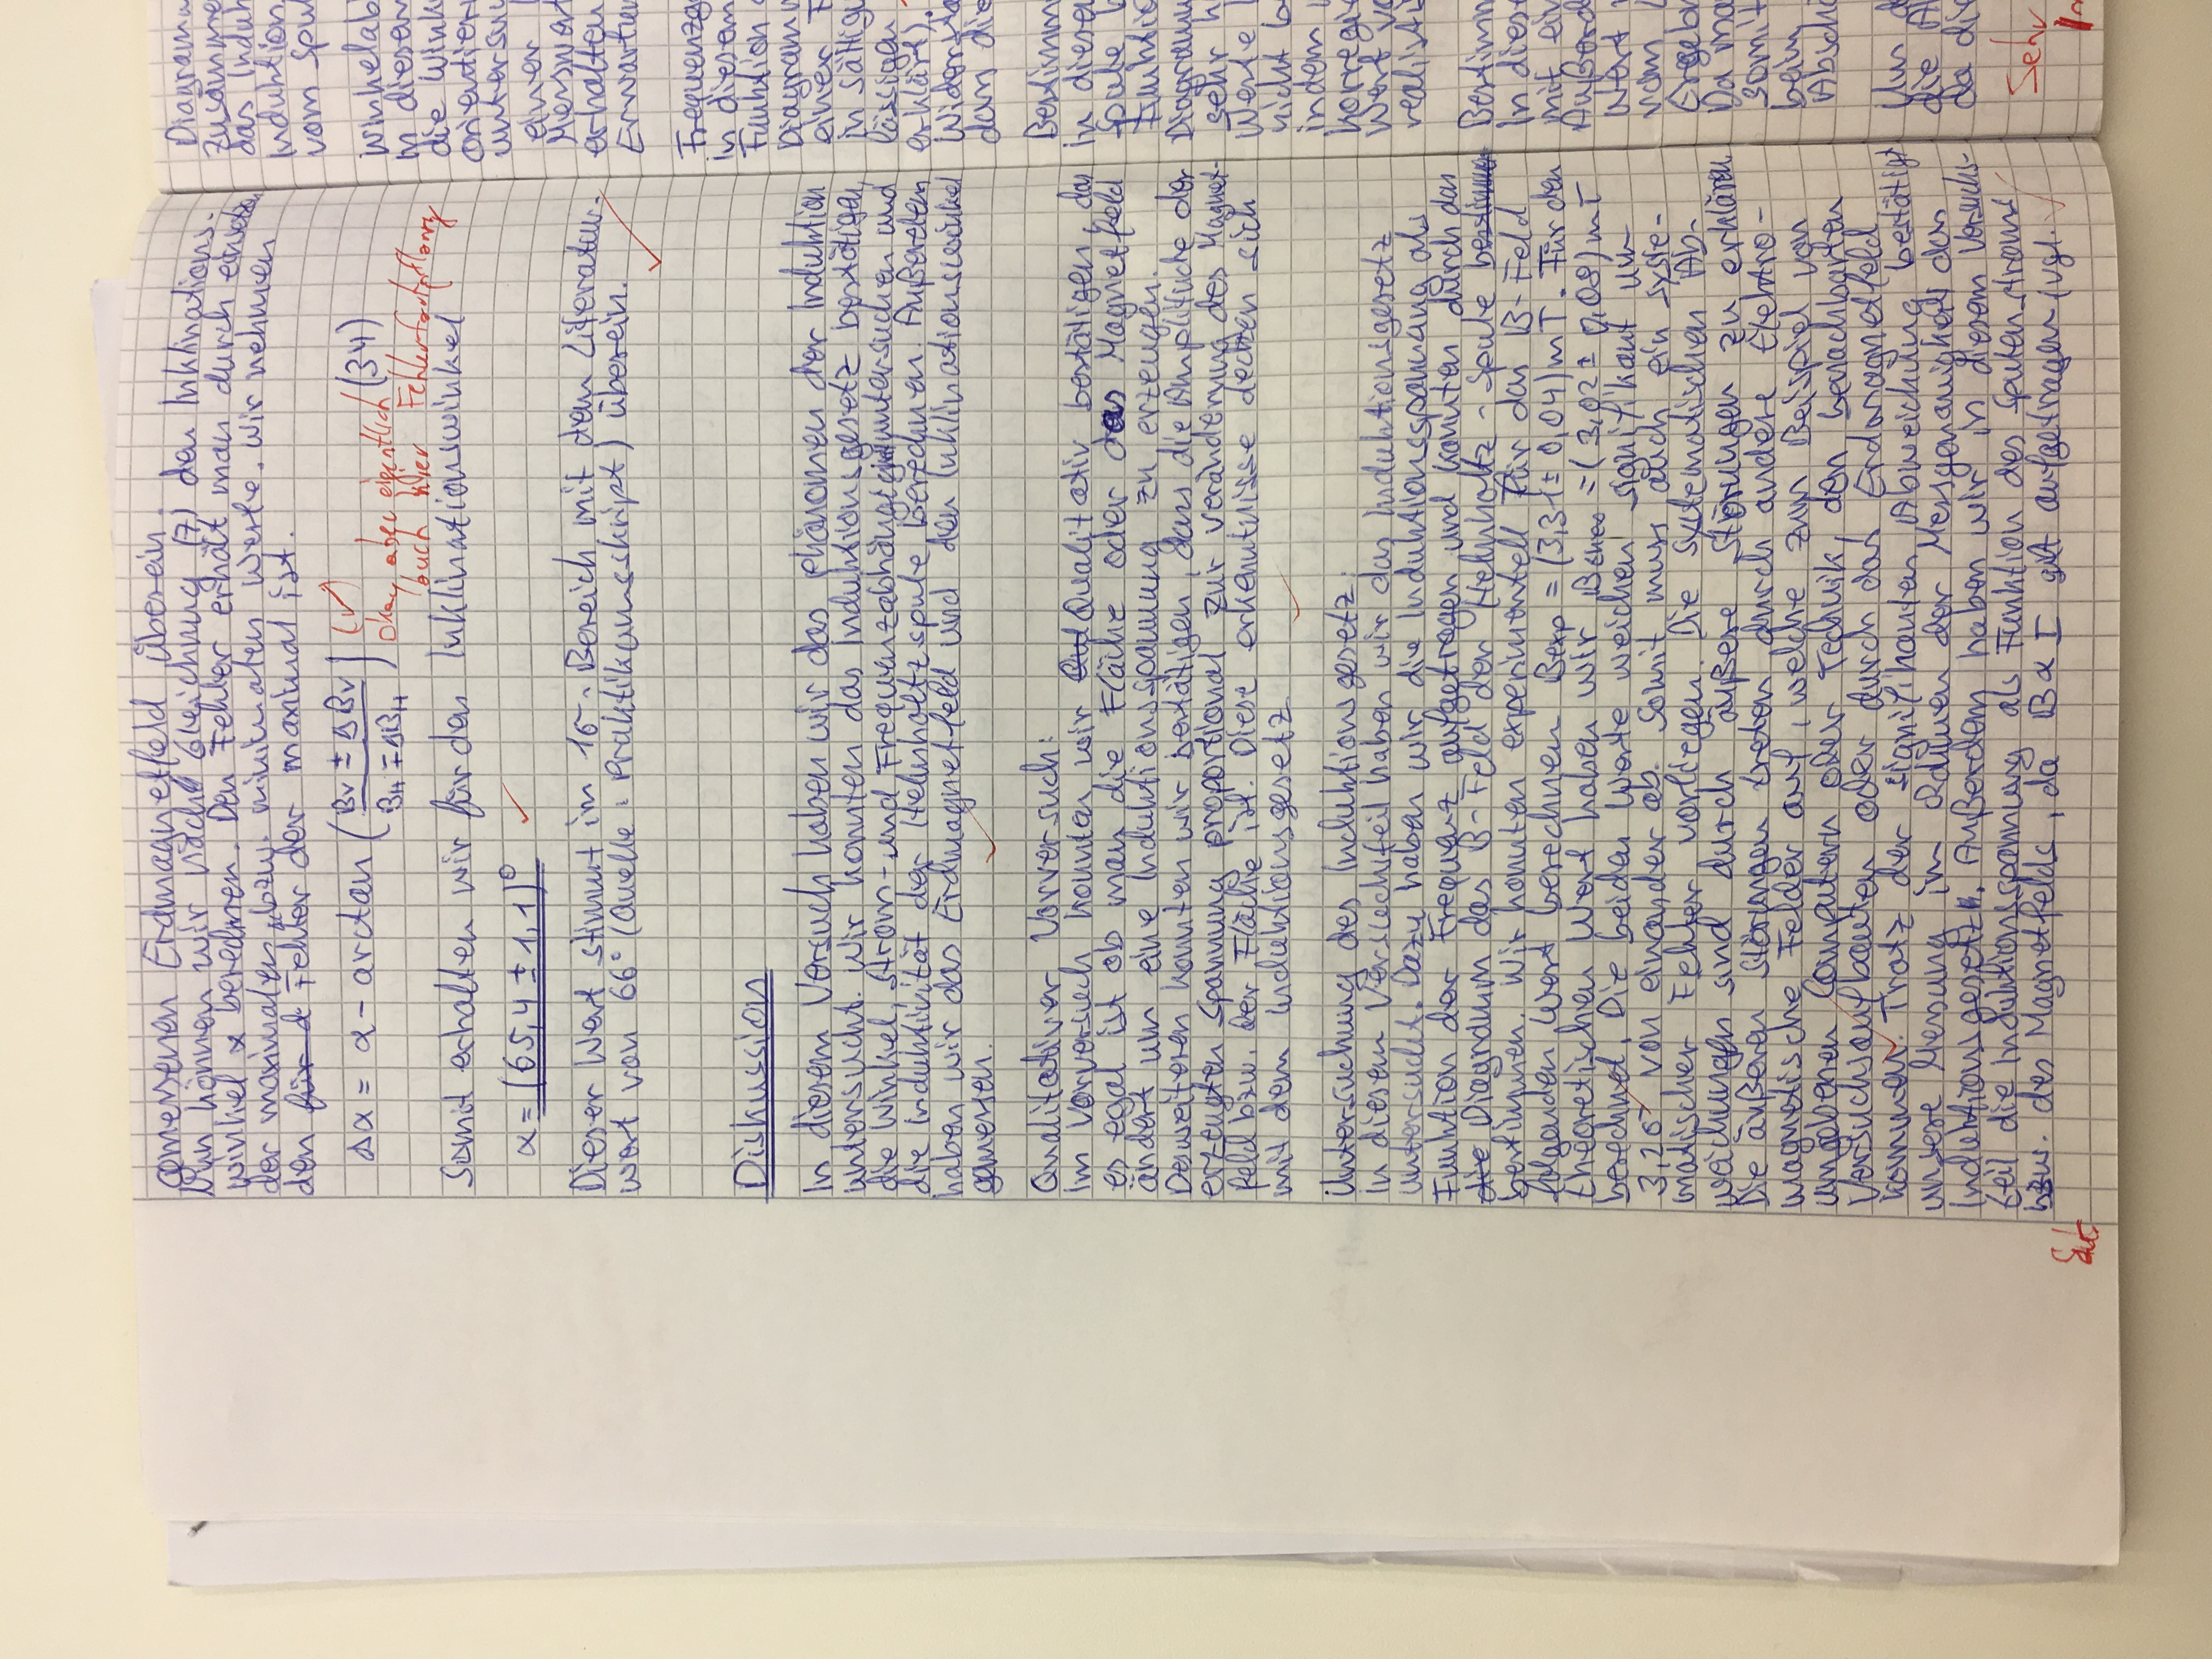 gemessenen Erdmagnetfeld überein.
Nun können wir nach Gleichung (7) den Inklinations-
winkel α berechnen. Den Fehler erhält man durch einsetzen
der maximalen bzw. minimalen Werte. Wir nehmen
den für d Fehler der maximal ist.
Δα = α - arctan (Bv ± ΔBv / BH ∓ ΔBH) (✓) (34)
Okay, aber eigentlich
auch hier Fehlerfortpflanzung
Somit erhalten wir für den Inklinationswinkel
α = (65,4 ± 1,1)° ✓
Dieser Wert stimmt im 1σ-Bereich mit dem Literatur-
wert von 66° (Quelle: Praktikumsskript) überein. ✓
Diskussion
In diesem Versuch haben wir das Phänomen der Induktion
untersucht. Wir konnten das Induktionsgesetz bestätigen,
die Winkel, Strom- und Frequenzabhängigkeit untersuchen und
die Induktivität der Helmholtzspule berechnen. Außerdem
haben wir das Erdmagnetfeld und den Inklinationswinkel
gemessen. ✓
Qualitativer Vorversuch:
Im Vorversuch konnten wir Qualitativ bestätigen, das
es egal ist ob man die Fläche oder das Magnetfeld
ändert um eine Induktionsspannung zu erzeugen.
Desweiteren konnten wir bestätigen, dass die Amplitude der
erzeugten Spannung proportional zur Veränderung des Magnet-
feld bzw. der Fläche ist. Diese erkenntnisse decken sich
mit dem Induktionsgesetz. ✓
Untersuchung des Induktionsgesetz:
In diesem Versuchsteil haben wir das Induktionsgesetz
untersucht. Dazu haben wir die Induktionsspannung als
Funktion der Frequenz aufgetragen und konnten durch das
die Diagramm das B-Feld der Helmholtz-Spule bestimmen
bestimmen. Wir konnten experimentell für das B-Feld
folgenden Wert berechnen Bexp = (3,31 ± 0,04) mT. Für den
theoretischen Wert haben wir Btheo = (3,02 ± 0,08) mT
berechnet. Die beiden Werte weichen signifikant um
3,2σ von einander ab. Somit muss auch ein syste-
matischer Fehler vorliegen. Die systematischen Ab-
weichungen sind durch äußere Störungen zu erklären.
Die äußeren Störungen treten durch andere Elektro-
magnetische Felder auf, welche zum Beispiel von
umgebenen Computern oder Technik, den benachbarten
Versuchsaufbauten oder durch das Erdmagnetfeld
kommen. ✓ Trotz der signifikanten Abweichung bestätigt
unsere Messung im Rahmen der Messgenauigkeit das
Induktionsgesetz. Außerdem haben wir in diesem Versuchs-
teil die Induktionsspannung als Funktion des Spulenstroms
bzw. des Magnetfelds, da B ∝ I gilt aufgetragen (vgl. ✓
das Induk
Induktion
vom Spul
Winkelab
in diesem
die Wink
orientier
untersuc
einer
Messwert
erhalten
Erwartun
Frequenzg
in diesem
Funktion
Diagramm
einer F
in Sättig
lässigen
erklärt).
Widersta
dass die
Bestimm
in diese
Spule b
Funktio
Diagramm
sehr
Werte
nicht b
indem
korregie
Wert vo
realist
Bestimm
In diese
mit ein
Außerd
Wert
vom
Ergebn
Da ma
somit
beim
Abschä
Um d
die A
da die
Sehr